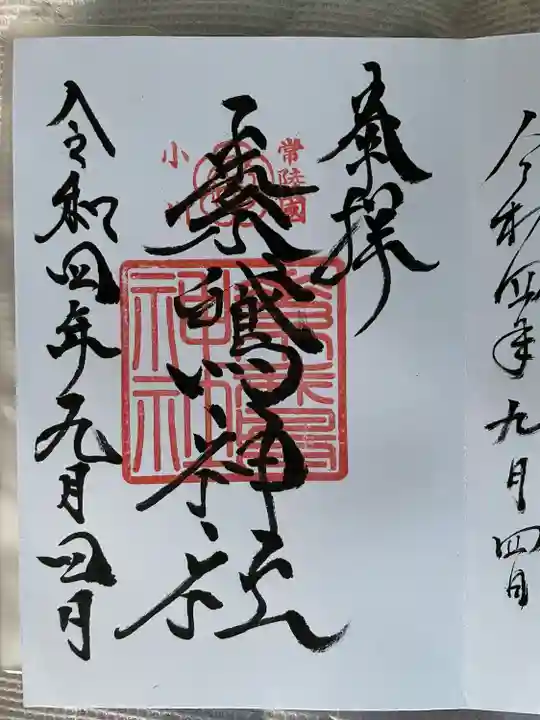 令和四年九月四日
奉拝
常陸國
小川
素鵞神社
素鵞神社
令和四年九月四日